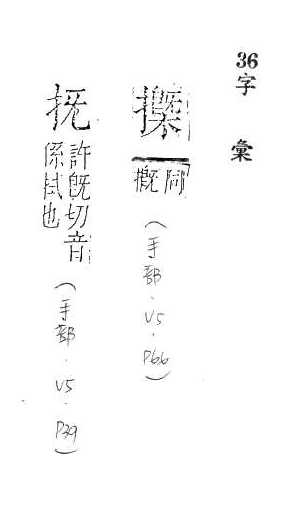 36字彙
同
摡
(手部.V5.P66)
許既切音
係拭也
(手部.V5.P39)